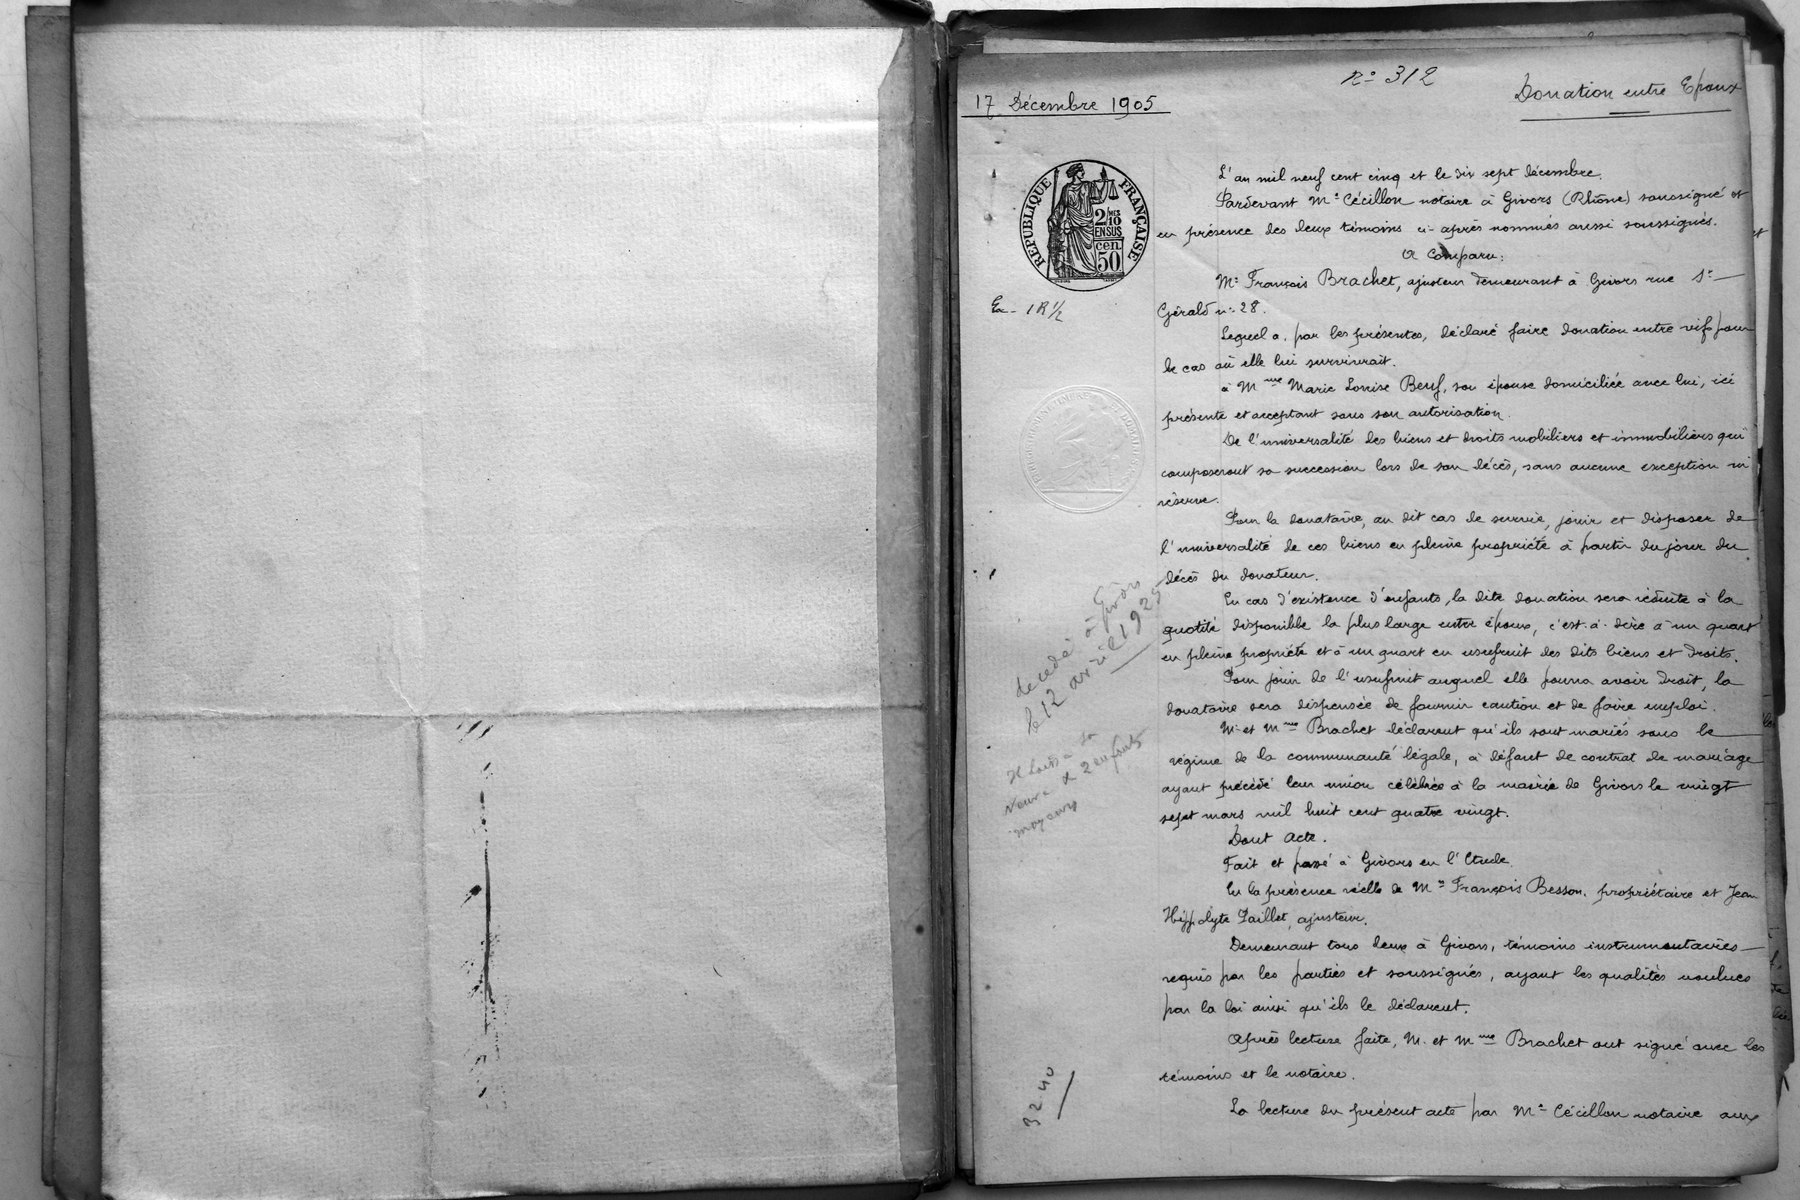 N° 312
17 Décembre 1905
Donation entre Epoux
RÉPUBLIQUE FRANÇAISE
2/10 MES
EN SUS
cen.
50
L'an mil neuf cent cinq et le dix sept décembre.
Pardevant Me Cécillon notaire à Givors (Rhône) soussigné et
en présence des deux témoins ci-après nommés aussi soussignés.
A Comparu:
Mr François Brachet, ajusteur demeurant à Givors rue St
Gérald n° 28.
Lequel a, par les présentes, déclaré faire donation entre vifs pour
le cas où elle lui survivrait.
à Mme Marie Louise Beuf, son épouse domiciliée avec lui, ici
présente et acceptant sous son autorisation.
De l'universalité des biens et droits mobiliers et immobiliers qui
composeront sa succession lors de son décès, sans aucune exception ni
réserve.
Pour la donataire, au dit cas de survie, jouir et disposer de
l'universalité de ces biens en pleine propriété à partir du jour du
décès du donateur.
En cas d'existence d'enfants, la dite donation sera réduite à la
quotité disponible la plus large entre époux, c'est-à-dire à un quart
en pleine propriété et à un quart en usufruit des dits biens et droits.
Pour jouir de l'usufruit auquel elle pourra avoir droit, la
donataire sera dispensée de fournir caution et de faire emploi.
Mr et Mme Brachet déclarent qu'ils sont mariés sous le
régime de la communauté légale, à défaut de contrat de mariage
ayant précédé leur union célébrée à la mairie de Givors le vingt
sept mars mil huit cent quatre vingt.
Dont Acte.
Fait et passé à Givors en l'Etude.
En la présence réelle de Mrs François Besson, propriétaire et Jean
Hippolyte Paillet, ajusteur.
Demeurant tous deux à Givors, témoins instrumentaires
requis par les parties et soussignés, ayant les qualités voulues
par la loi ainsi qu'ils le déclarent.
Après lecture faite, M. et Mme Brachet ont signé avec les
témoins et le notaire.
La lecture du présent acte par Me Cécillon notaire aux
En- 1R 1/2
décédé à Givors
le 12 avril 1925
Il laisse sa
veuve & 2 enfants
majeurs
3240